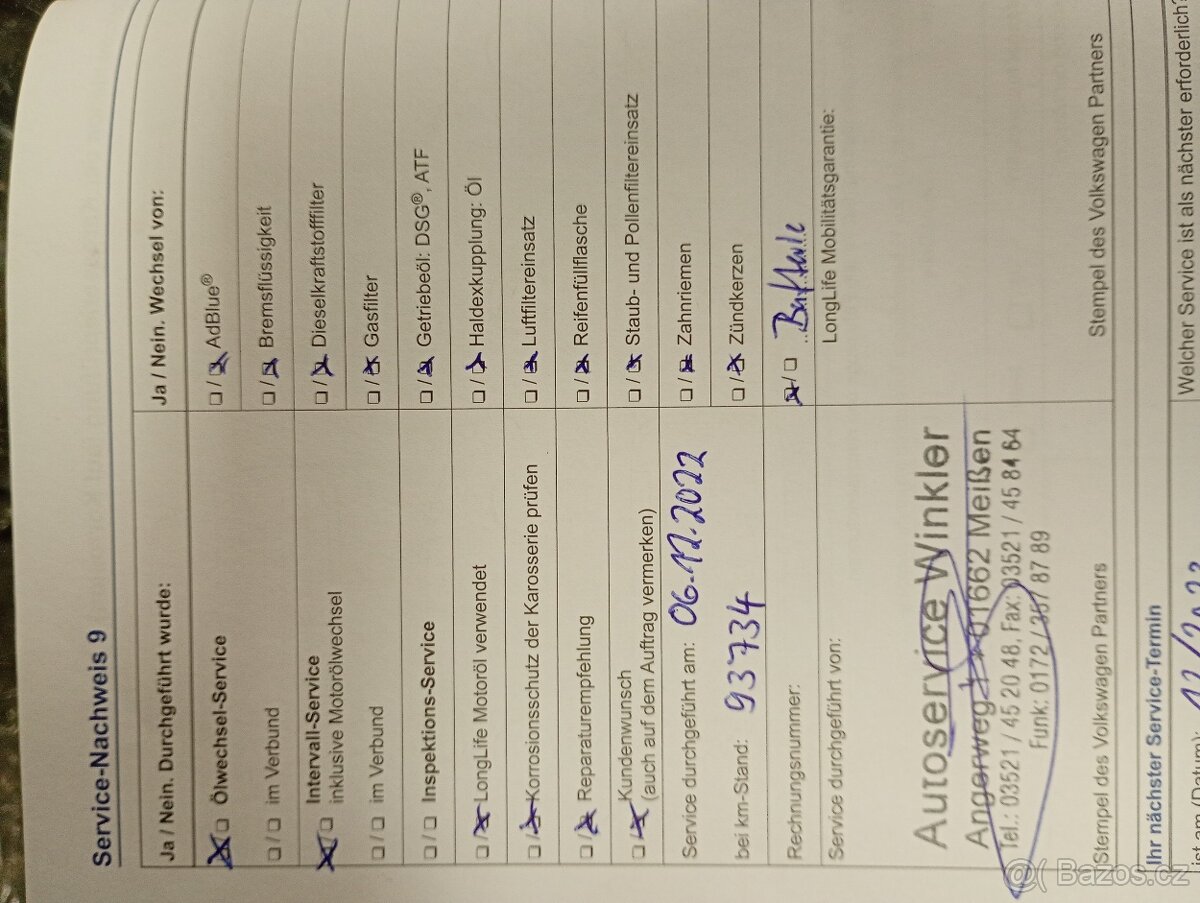 Service-Nachweis 9
Ja / Nein. Durchgeführt wurde:
☒/☐ Ölwechsel-Service
☐/☐ im Verbund
☒/☐ Intervall-Service
inklusive Motorölwechsel
☐/☐ im Verbund
☐/☐ Inspektions-Service
☐/☒ LongLife Motoröl verwendet
☐/☒ Korrosionsschutz der Karosserie prüfen
☐/☒ Reparaturempfehlung
☐/☒ Kundenwunsch
(auch auf dem Auftrag vermerken)
Service durchgeführt am: 06.12.2022
bei km-Stand: 93734
Rechnungsnummer:
Service durchgeführt von:
Autoservice Winkler
Angerweg 1 * 01662 Meißen
Tel.: 03521 / 45 20 48, Fax: 03521 / 45 84 64
Funk: 0172 / 357 87 89
Stempel des Volkswagen Partners
Ja / Nein. Wechsel von:
☐/☒ AdBlue®
☐/☒ Bremsflüssigkeit
☐/☒ Dieselkraftstofffilter
☐/☒ Gasfilter
☐/☒ Getriebeöl: DSG®, ATF
☐/☒ Haldexkupplung: Öl
☐/☒ Luftfiltereinsatz
☐/☒ Reifenfüllflasche
☐/☒ Staub- und Pollenfiltereinsatz
☐/☒ Zahnriemen
☐/☒ Zündkerzen
☒/☐
LongLife Mobilitätsgarantie:
Stempel des Volkswagen Partners
Ihr nächster Service-Termin
Welcher Service ist als nächster erforderlich?
ist am (Datum):
Bazos.cz